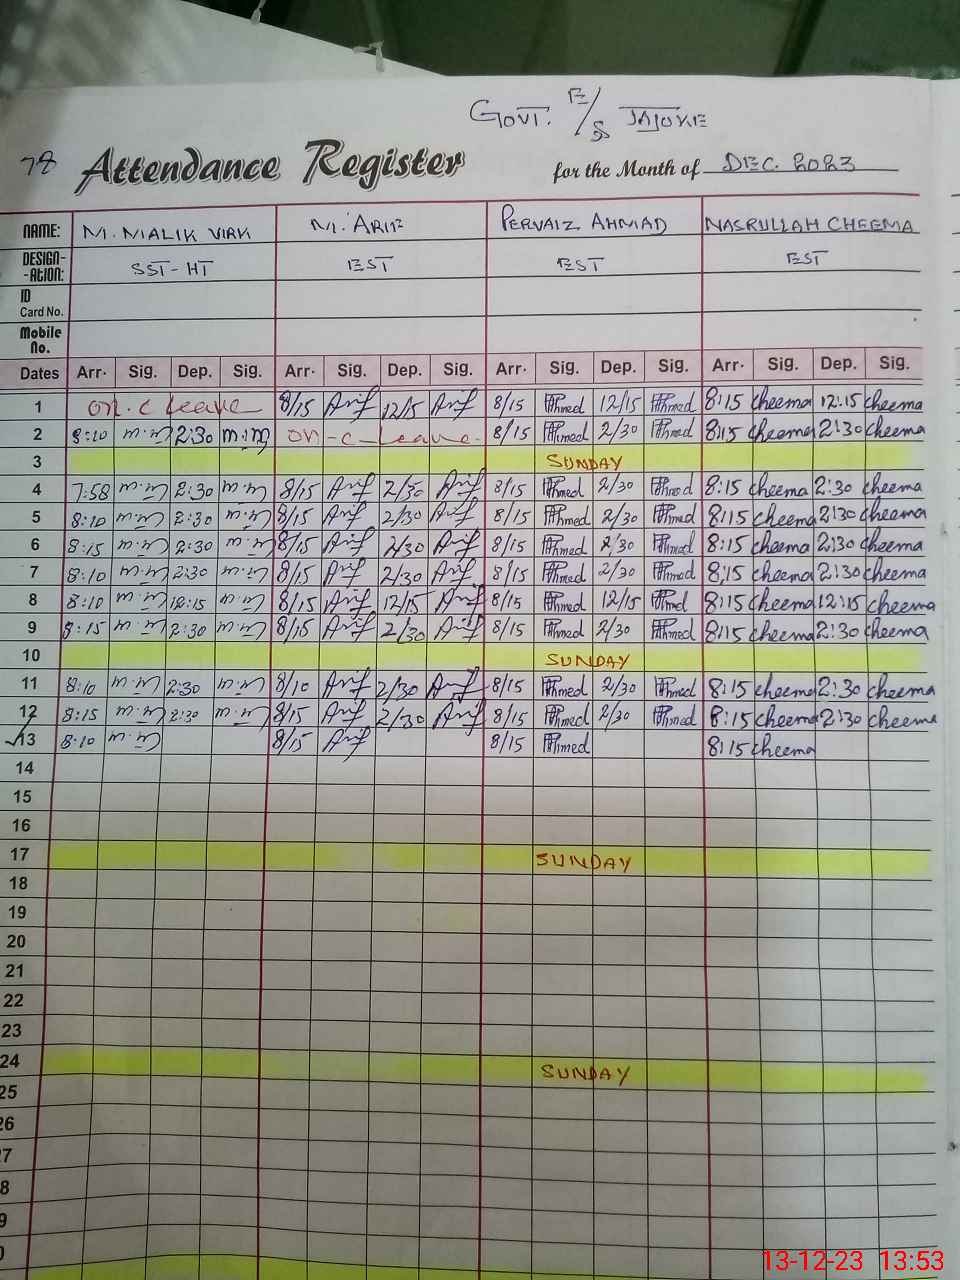 GOVT. E/S JAJOKE
78 Attendance Register for the Month of DEC. 2023
NAME: M. MALIK VIRK M. ARIF PERVAIZ AHMAD NASRULLAH CHEEMA
DESIGN- -ATION: SST-HT EST EST EST
ID Card No.
Mobile No.
Dates Arr. Sig. Dep. Sig. Arr. Sig. Dep. Sig. Arr. Sig. Dep. Sig. Arr. Sig. Dep. Sig.
1 on.c leave 8/15 Arif 12/15 Arif 8/15 Ahmed 12/15 Ahmed 8:15 cheema 12:15 cheema
2 8:10 2:30 on-c-leave. 8/15 Ahmed 2/30 Ahmed 8:15 cheema 2:30 cheema
3 SUNDAY
4 7:58 2:30 8/15 Arif 2/30 Arif 8/15 Ahmed 2/30 Ahmed 8:15 cheema 2:30 cheema
5 8:10 2:30 8/15 Arif 2/30 Arif 8/15 Ahmed 2/30 Ahmed 8:15 cheema 2:30 cheema
6 8:15 2:30 8/15 Arif 2/30 Arif 8/15 Ahmed 2/30 Ahmed 8:15 cheema 2:30 cheema
7 8:10 2:30 8/15 Arif 2/30 Arif 8/15 Ahmed 2/30 Ahmed 8:15 cheema 2:30 cheema
8 8:10 12:15 8/15 Arif 12/15 Arif 8/15 Ahmed 12/15 Ahmed 8:15 cheema 12:15 cheema
9 8:15 2:30 8/15 Arif 2/30 Arif 8/15 Ahmed 2/30 Ahmed 8:15 cheema 2:30 cheema
10 SUNDAY
11 8:10 2:30 8/10 Arif 2/30 Arif 8/15 Ahmed 2/30 Ahmed 8:15 cheema 2:30 cheema
12 8:15 2:30 8/15 Arif 2/30 Arif 8/15 Ahmed 2/30 Ahmed 8:15 cheema 2:30 cheema
13 8:10 8/15 Arif 8/15 Ahmed 8:15 cheema
14
15
16
17 SUNDAY
18
19
20
21
22
23
24 SUNDAY
25
26
7
8
9
0
13-12-23 13:53